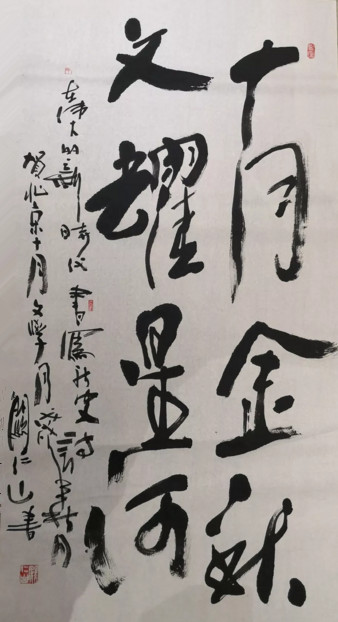 十月金秋
文耀星河
在伟大的新时代书写历史诗
贺北京十月文学月
关仁山书